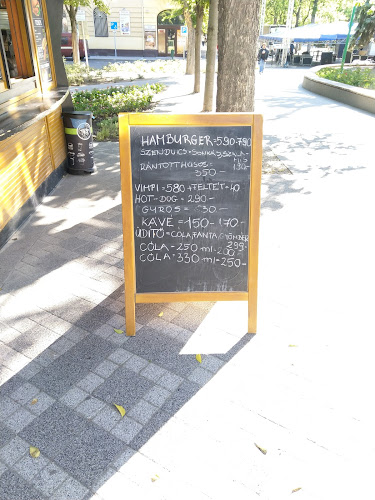 HAMBURGER=590-790
SZENDVICS=SONKÁS,SZALÁ-
MIS
RÁNTOTTHÚSOS-
350-
VIMPI=580+FELTÉT=40
HOT-DOG=290-
GYROS= 30-
KÁVÉ =150-170-
ÜDITŐ=COLA,FANTA,GYÖMBÉR
299-
COLA-250 ml-200-
COLA-330 ml-250-